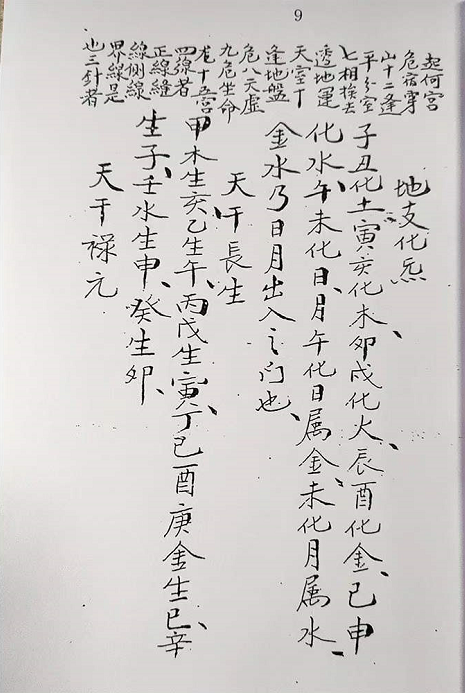 9
起何宫
危宿穿
山十二逢
平分金
七相挨去
透地運
天室丁
逢地盤
危八天虛
九危生命
龙十五宫
四線者
正線縫
線側線
界線是
也三針者
地支化炁
子丑化土、寅亥化木、卯戌化火、辰酉化金、巳申
化水、午未化日、月午化日属金、未化月属水、
金水乃日月出入之门也、
天干長生
甲木生亥乙生午、丙戊生寅、丁巳酉庚金生巳、辛
生子、壬水生申、癸生卯、
天干禄元